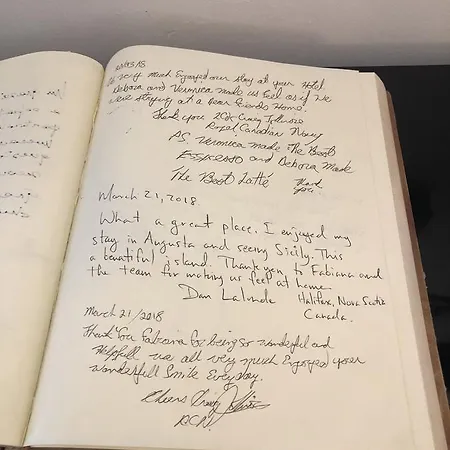 20/03/18
We very much Enjoyed our stay at your Hotel.
Debora and Veronica made us feel as if we
were staying at a Dear friends Home.
Thank you Craig
Royal Canadian Navy
PS. Veronica made The Best
Espresso and Debora Made
The Best Latté Thank you!
March 21, 2018.
What a great place. I enjoyed my
stay in Augusta and seeing Sicily. This
a beautiful island. Thank you to Fabiana and
the team for making us feel at home
Dan Lalonde Halifax, Nova Scotia
Canada.
March 21/2018
Thank You Fabiana for being so wonderful and
Helpfull we all very much Enjoyed your
wonderfull Smile Everyday.
Cheers Craig
RCN.